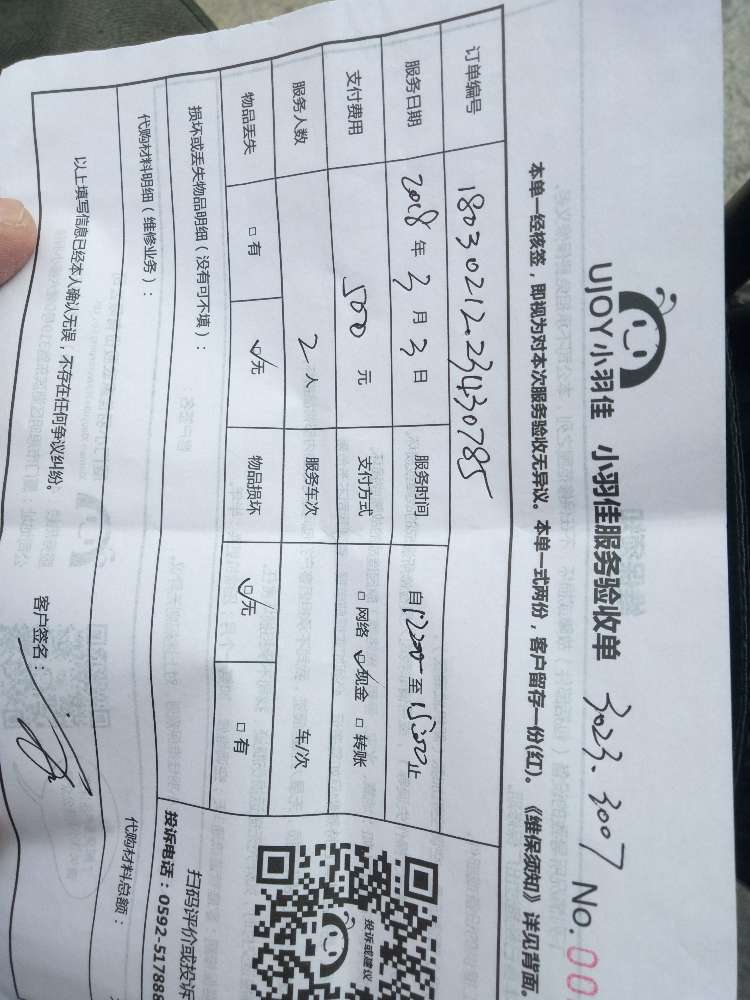 UJOY小羽佳 小羽佳服务验收单 3023.3007 No.00
本单一经核签，即视为对本次服务验收无异议。本单一式两份，客户留存一份(红)。《维保须知》详见背面。
订单编号 18030212.23430785
服务日期 2018年3月3日 服务时间 自12:00至15:00止
支付费用 500元 支付方式 □网络 ☑现金 □转账
服务人数 2人 服务车次 车/次
物品丢失 □有 ☑无 物品损坏 ☑无 □有
损坏或丢失物品明细（没有可不填）：
代购材料明细（维修业务）： 代购材料总额：
以上填写信息已经本人确认无误，不存在任何争议纠纷。 客户签名：
投诉或建议
扫码评价或投诉
投诉电话：0592-517888